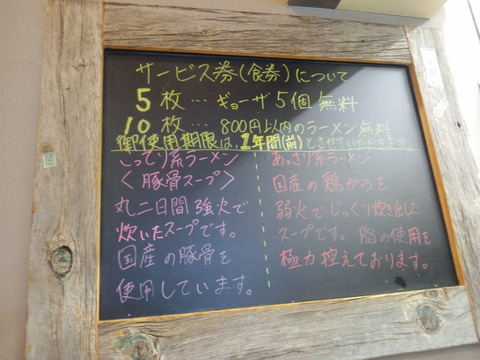 サービス券(食券)について
5枚…ギョーザ5個無料
10枚…800円以内のラーメン無料
御使用期限は、1年間(前)とさせていただきます。
こってり系ラーメン
<豚骨スープ>
丸二日間強火で
炊いたスープです。
国産の豚骨を
使用しています。
あっさり系ラーメン
国産の鶏がらを
弱火でじっくり炊き出した
スープです。脂の使用を
極力控えております。